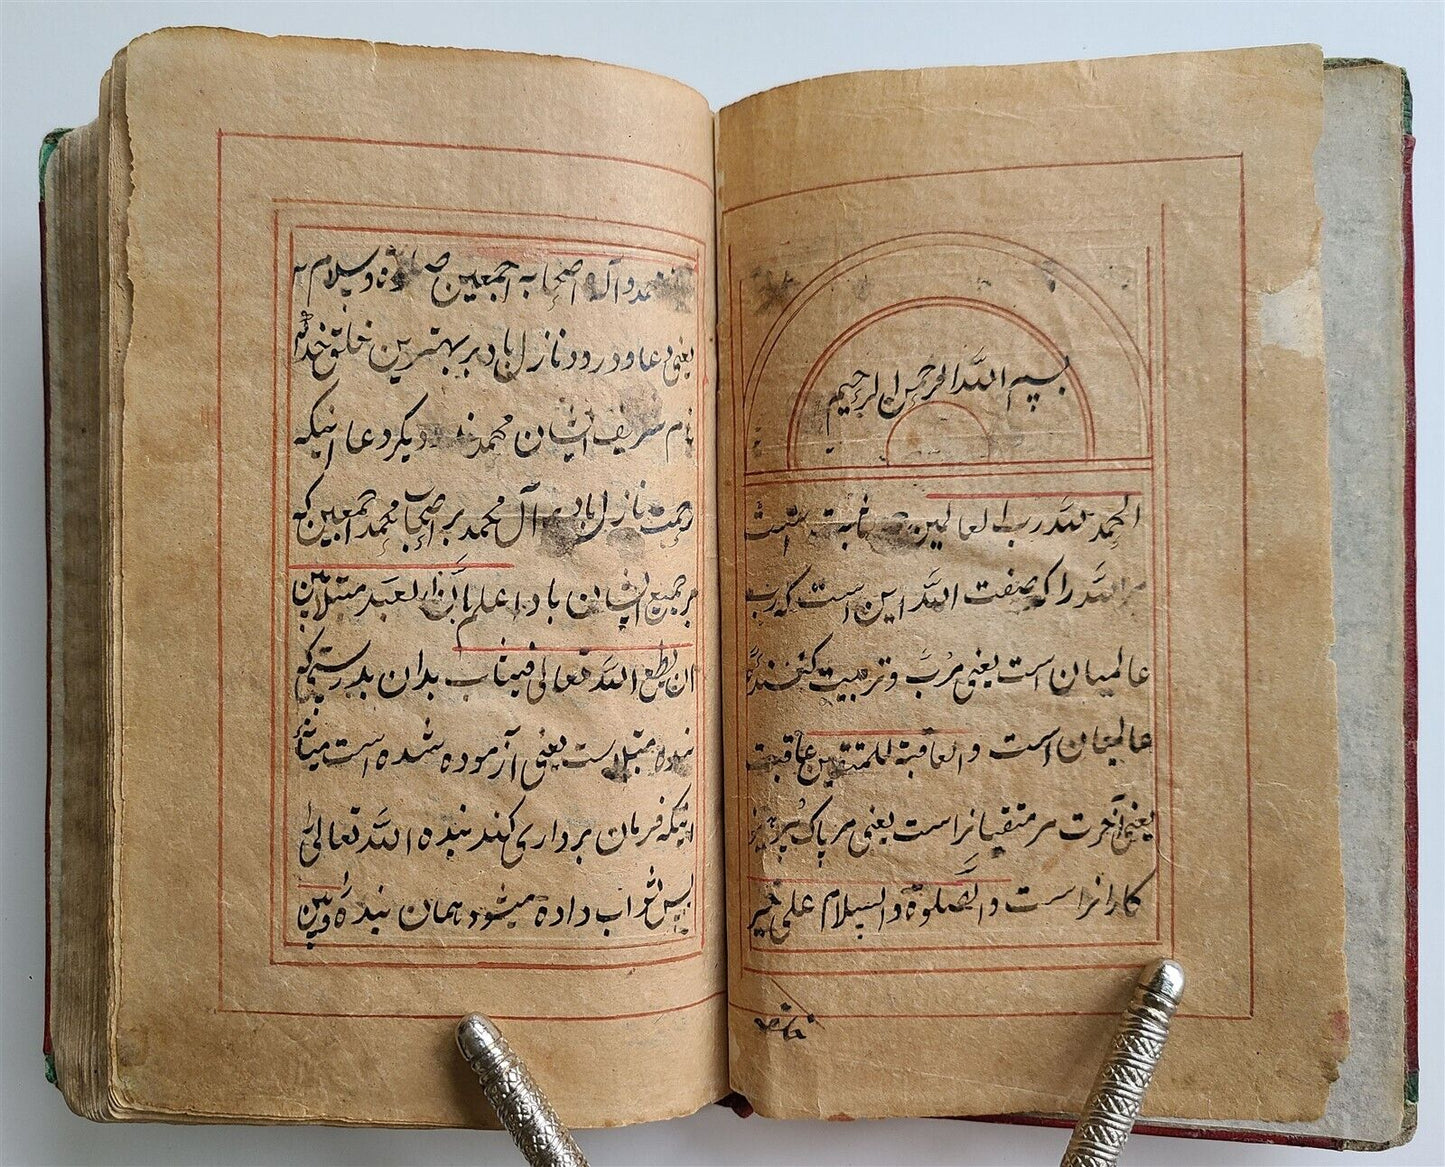 بسم الله الرحمن الرحیم
الحمد لله رب العالمین است
الله را که صفت الله این است که رب
عالمیان است یعنی مرب و تربیت کنند
عالمیان است والعاقبة للمتقین عاقبت
یعنی آخرت مر متقیانراست یعنی مر پاک پرهیز
کارانراست والصلوة والسلام علی خیر
خلقه
محمد و آله اصحابه اجمعین صلوة و سلام
یعنی دعا و درود نازل باد بر بهترین خلق خدا که
نام شریف ایشان محمد دیگر دعا اینکه
رحمت نازل باد بر آل محمد بر اصحاب محمد اجمعین که
بر جمیع ایشان باد اعلم بان العبد مبتلا بین
ان یطیع الله تعالی فیثاب بدان بدرستیکه
بنده مبتلاست یعنی آزموده شده است میان
اینکه فرمان برداری کند بنده الله تعالی را
پس ثواب داده میشود همان بنده را و بین